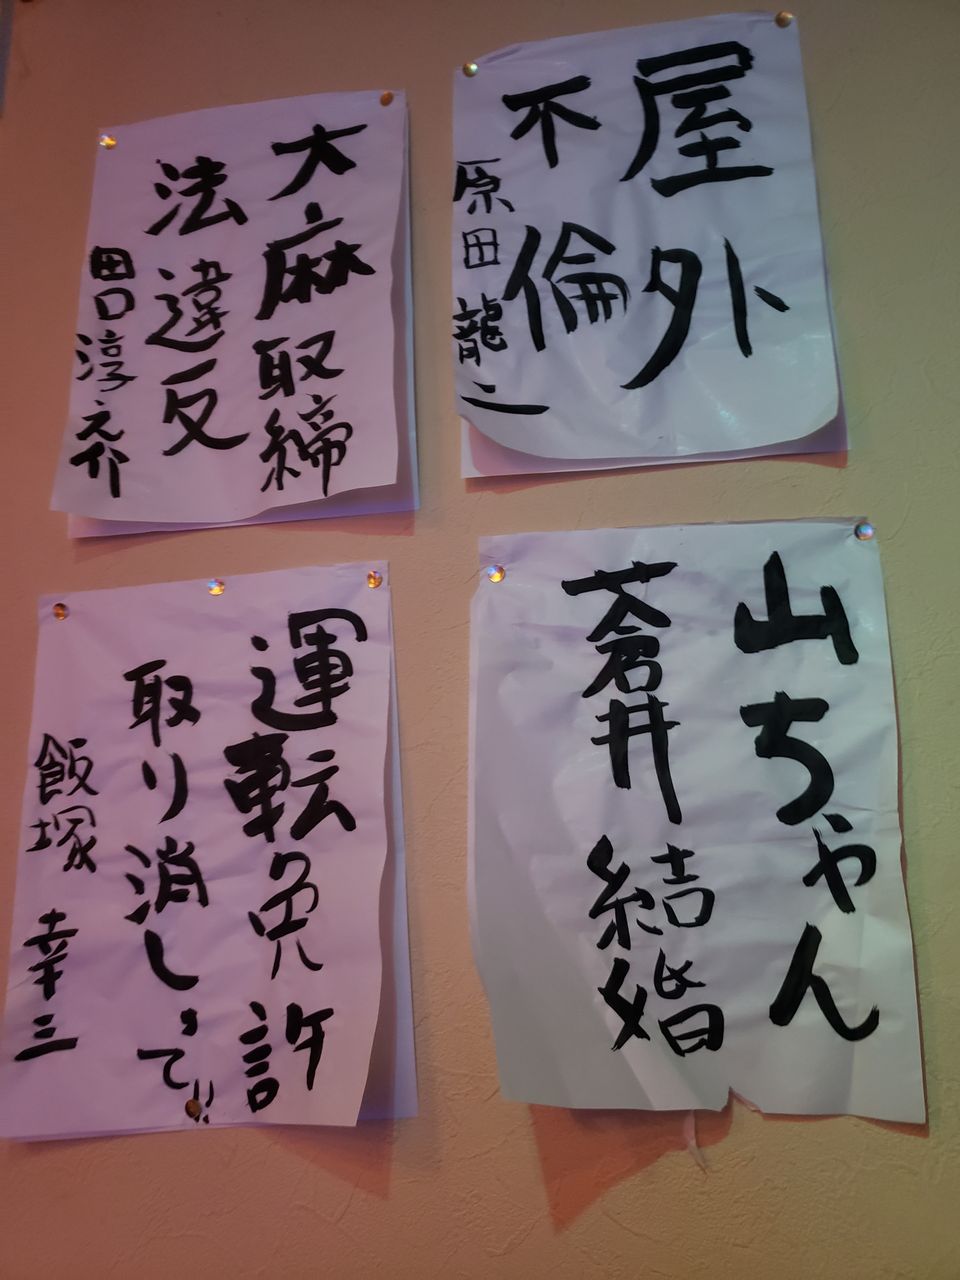 屋外
不倫
原田龍二
大麻取締
法違反
田口淳之介
山ちゃん
蒼井結婚
運転免許
取り消して!!
飯塚幸三